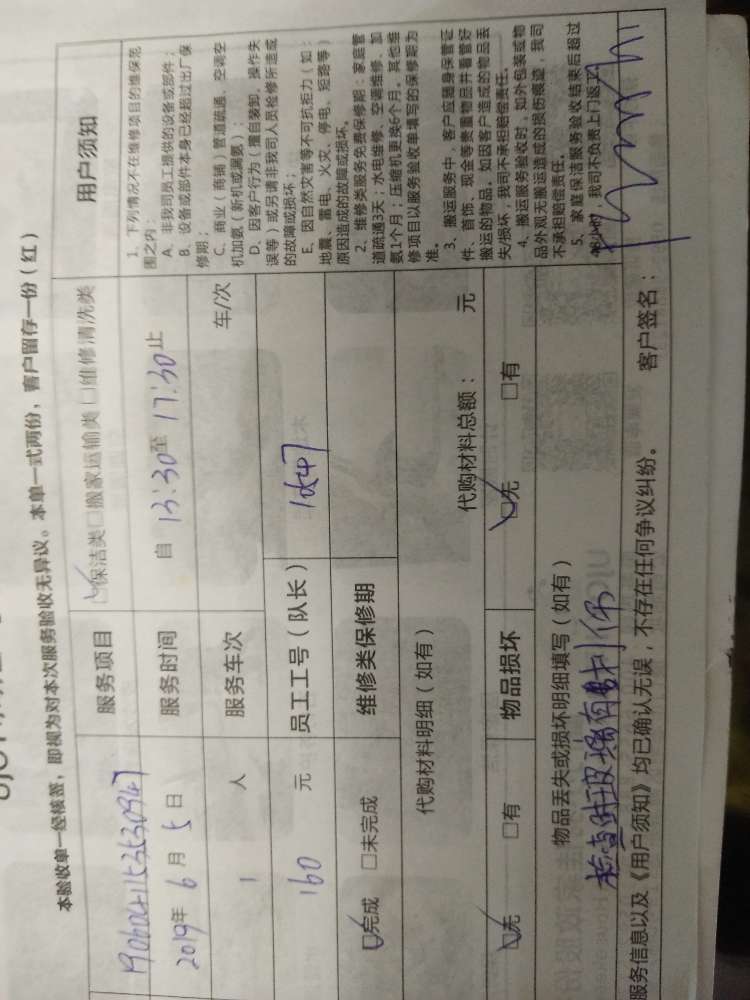 本验收单一经核签，即视为对本次服务验收无异议。本单一式两份，客户留存一份（红）
服务项目 □保洁类 □搬家运输类 □维修清洗类 用户须知
2019年6月5日 服务时间 自 13:30 至 17:30 止
1 人 服务车次 车/次
160 元 员工工号（队长）
□完成 □未完成 维修类保修期
代购材料明细（如有） 代购材料总额： 元
□无 □有 物品损坏 □无 □有
物品丢失或损坏明细填写（如有）
检查时玻璃有
服务信息以及《用户须知》均已确认无误，不存在任何争议纠纷。 客户签名：
1、下列情况不在维修项目的维保范
围之内：
A、非我司员工提供的设备或部件；
B、设备或部件本身已经超过出厂保
修期；
C、商业（商铺）管道疏通、空调空
机加氨（新机或漏氨）；
D、因客户行为（擅自装卸、操作失
误等）或另请非我司人员检修所造成
的故障或损坏；
E、因自然灾害等不可抗拒力（如：
地震、雷电、火灾、停电、短路等）
原因造成的故障或损坏。
2、维修类服务免费保修期：家庭管
道疏通3天；水电维修、空调维修、加
氨1个月；压缩机更换6个月。其他维
修项目以服务验收单填写的保修期为
准。
3、搬运服务中，客户应随身保管证
件、首饰、现金等贵重物品并看管好
搬运的物品，如因客户造成的物品丢
失/损坏，我司不承担赔偿责任。
4、搬运服务验收时，如外包装或物
品外观无搬运造成的损伤痕迹，我司
不承担赔偿责任。
5、家庭保洁服务验收结束后超过
48小时，我司不负责上门返工。